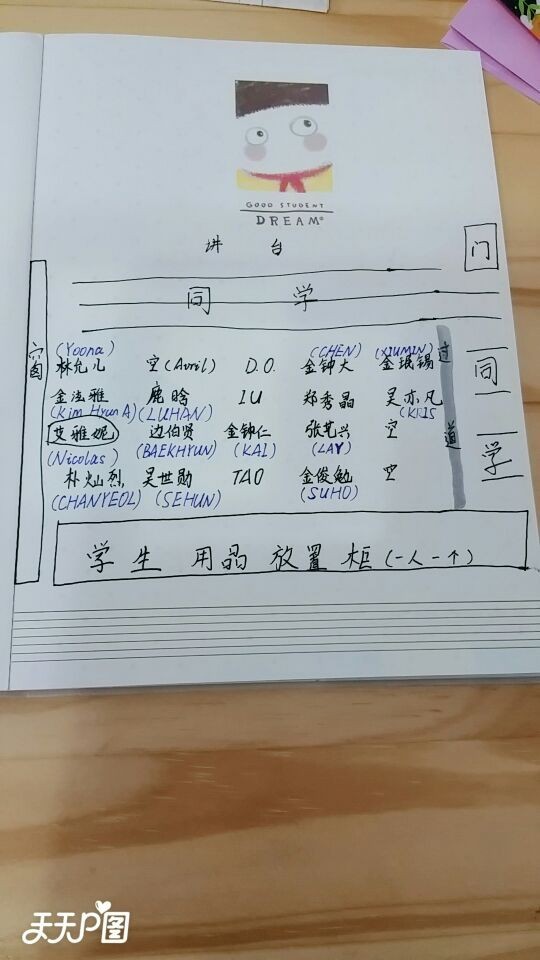 GOOD STUDENT
DREAM®
讲 台
门
同 学
窗
(Yoona) (CHEN) (XIUMIN)
林允儿 空(Avril) D.O. 金钟大 金珉锡
过道
同学
金泫雅 鹿晗 IU 郑秀晶 吴亦凡
(Kim HyunA) (LUHAN) (KRIS
艾雅妮 边伯贤 金钟仁 张艺兴 空
(Nicolas) (BAEKHYUN) (KAI) (LAY)
朴灿烈 吴世勋 TAO 金俊勉 空
(CHANYEOL) (SEHUN) (SUHO)
学生 用品 放置 柜(一人一个)
天天P图